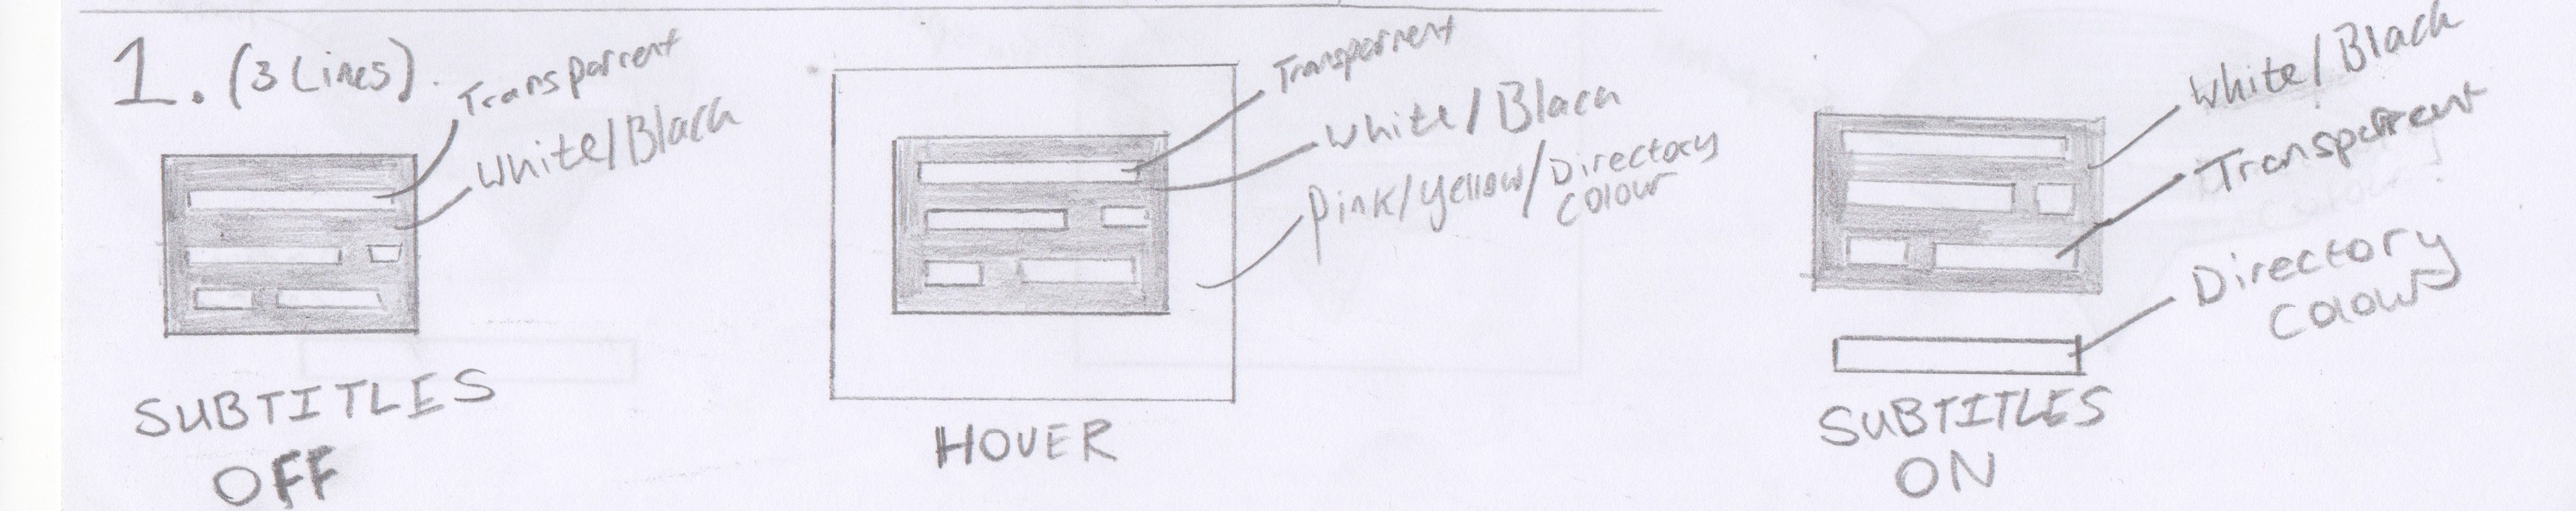 1. (3 Lines).
Transparrent
White/Black
SUBTITLES
OFF
Transparrent
White/Black
Pink/Yellow/Directory
Colour
HOVER
White/Black
Transparrent
Directory
Colour
SUBTITLES
ON